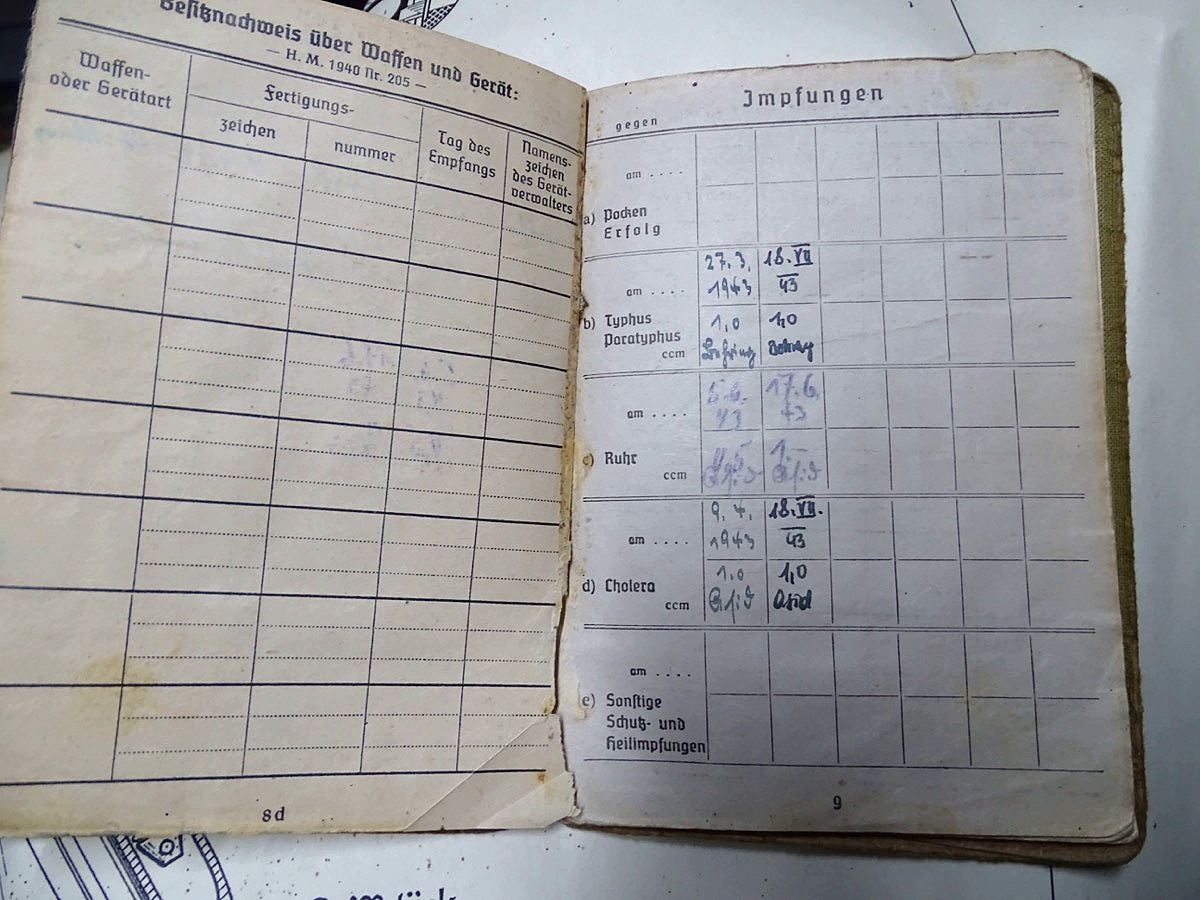 Besitznachweis über Waffen und Gerät:
— H. M. 1940 Nr. 205 —
Waffen-
oder Gerätart
Fertigungs-
zeichen
nummer
Tag des
Empfangs
Namens-
zeichen
des Gerät-
verwalters
8d
Impfungen
gegen
am ....
a) Pocken
Erfolg
27.3. 18.VII
am .... 1943 43
b) Typhus 1,0 1,0
Paratyphus
ccm
5.6. 17.6.
am .... 43 43
c) Ruhr 1.-
ccm
9.4. 18.VII.
am .... 1943 43
d) Cholera 1,0 1,0
ccm
am ....
e) Sonstige
Schutz- und
Heilimpfungen
9